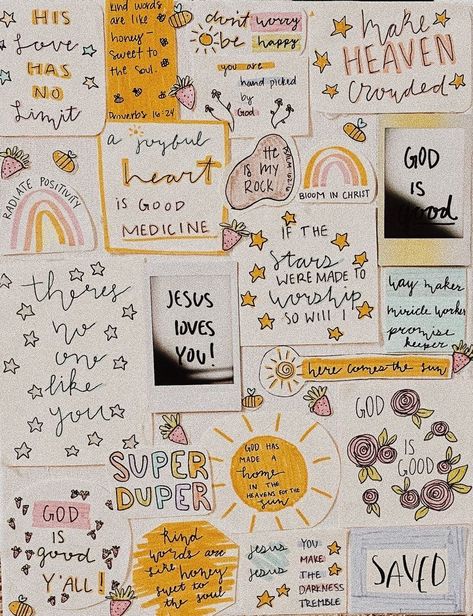 HIS
Love
HAS
NO
Limit
kind words
are like
honey -
sweet to
the soul.
Proverbs 16:24
don't worry
be happy
you are
hand picked
by
God
make
HEAVEN
crowded
RADIATE POSITIVITY
a joyful
heart
IS GOOD
MEDICINE
HE
IS MY
ROCK
BLOOM IN CHRIST
GOD
IS
Good
theres
no
one
like
you
JESUS
LOVES
YOU!
IF THE
Stars
WERE MADE TO
Worship
SO WILL I
way maker
miricle worker
promise
keeper
here comes the sun
GOD
IS
GOOD
SUPER
DUPER
GOD HAS
MADE A
home
IN THE
HEAVENS FOR THE
Sun
GOD
IS
good
Y'ALL!
kind
words are
like honey
swet to
the soul
Jesus
Jesus
YOU
MAKE
THE
DARKNESS
TREMBLE
SAVED